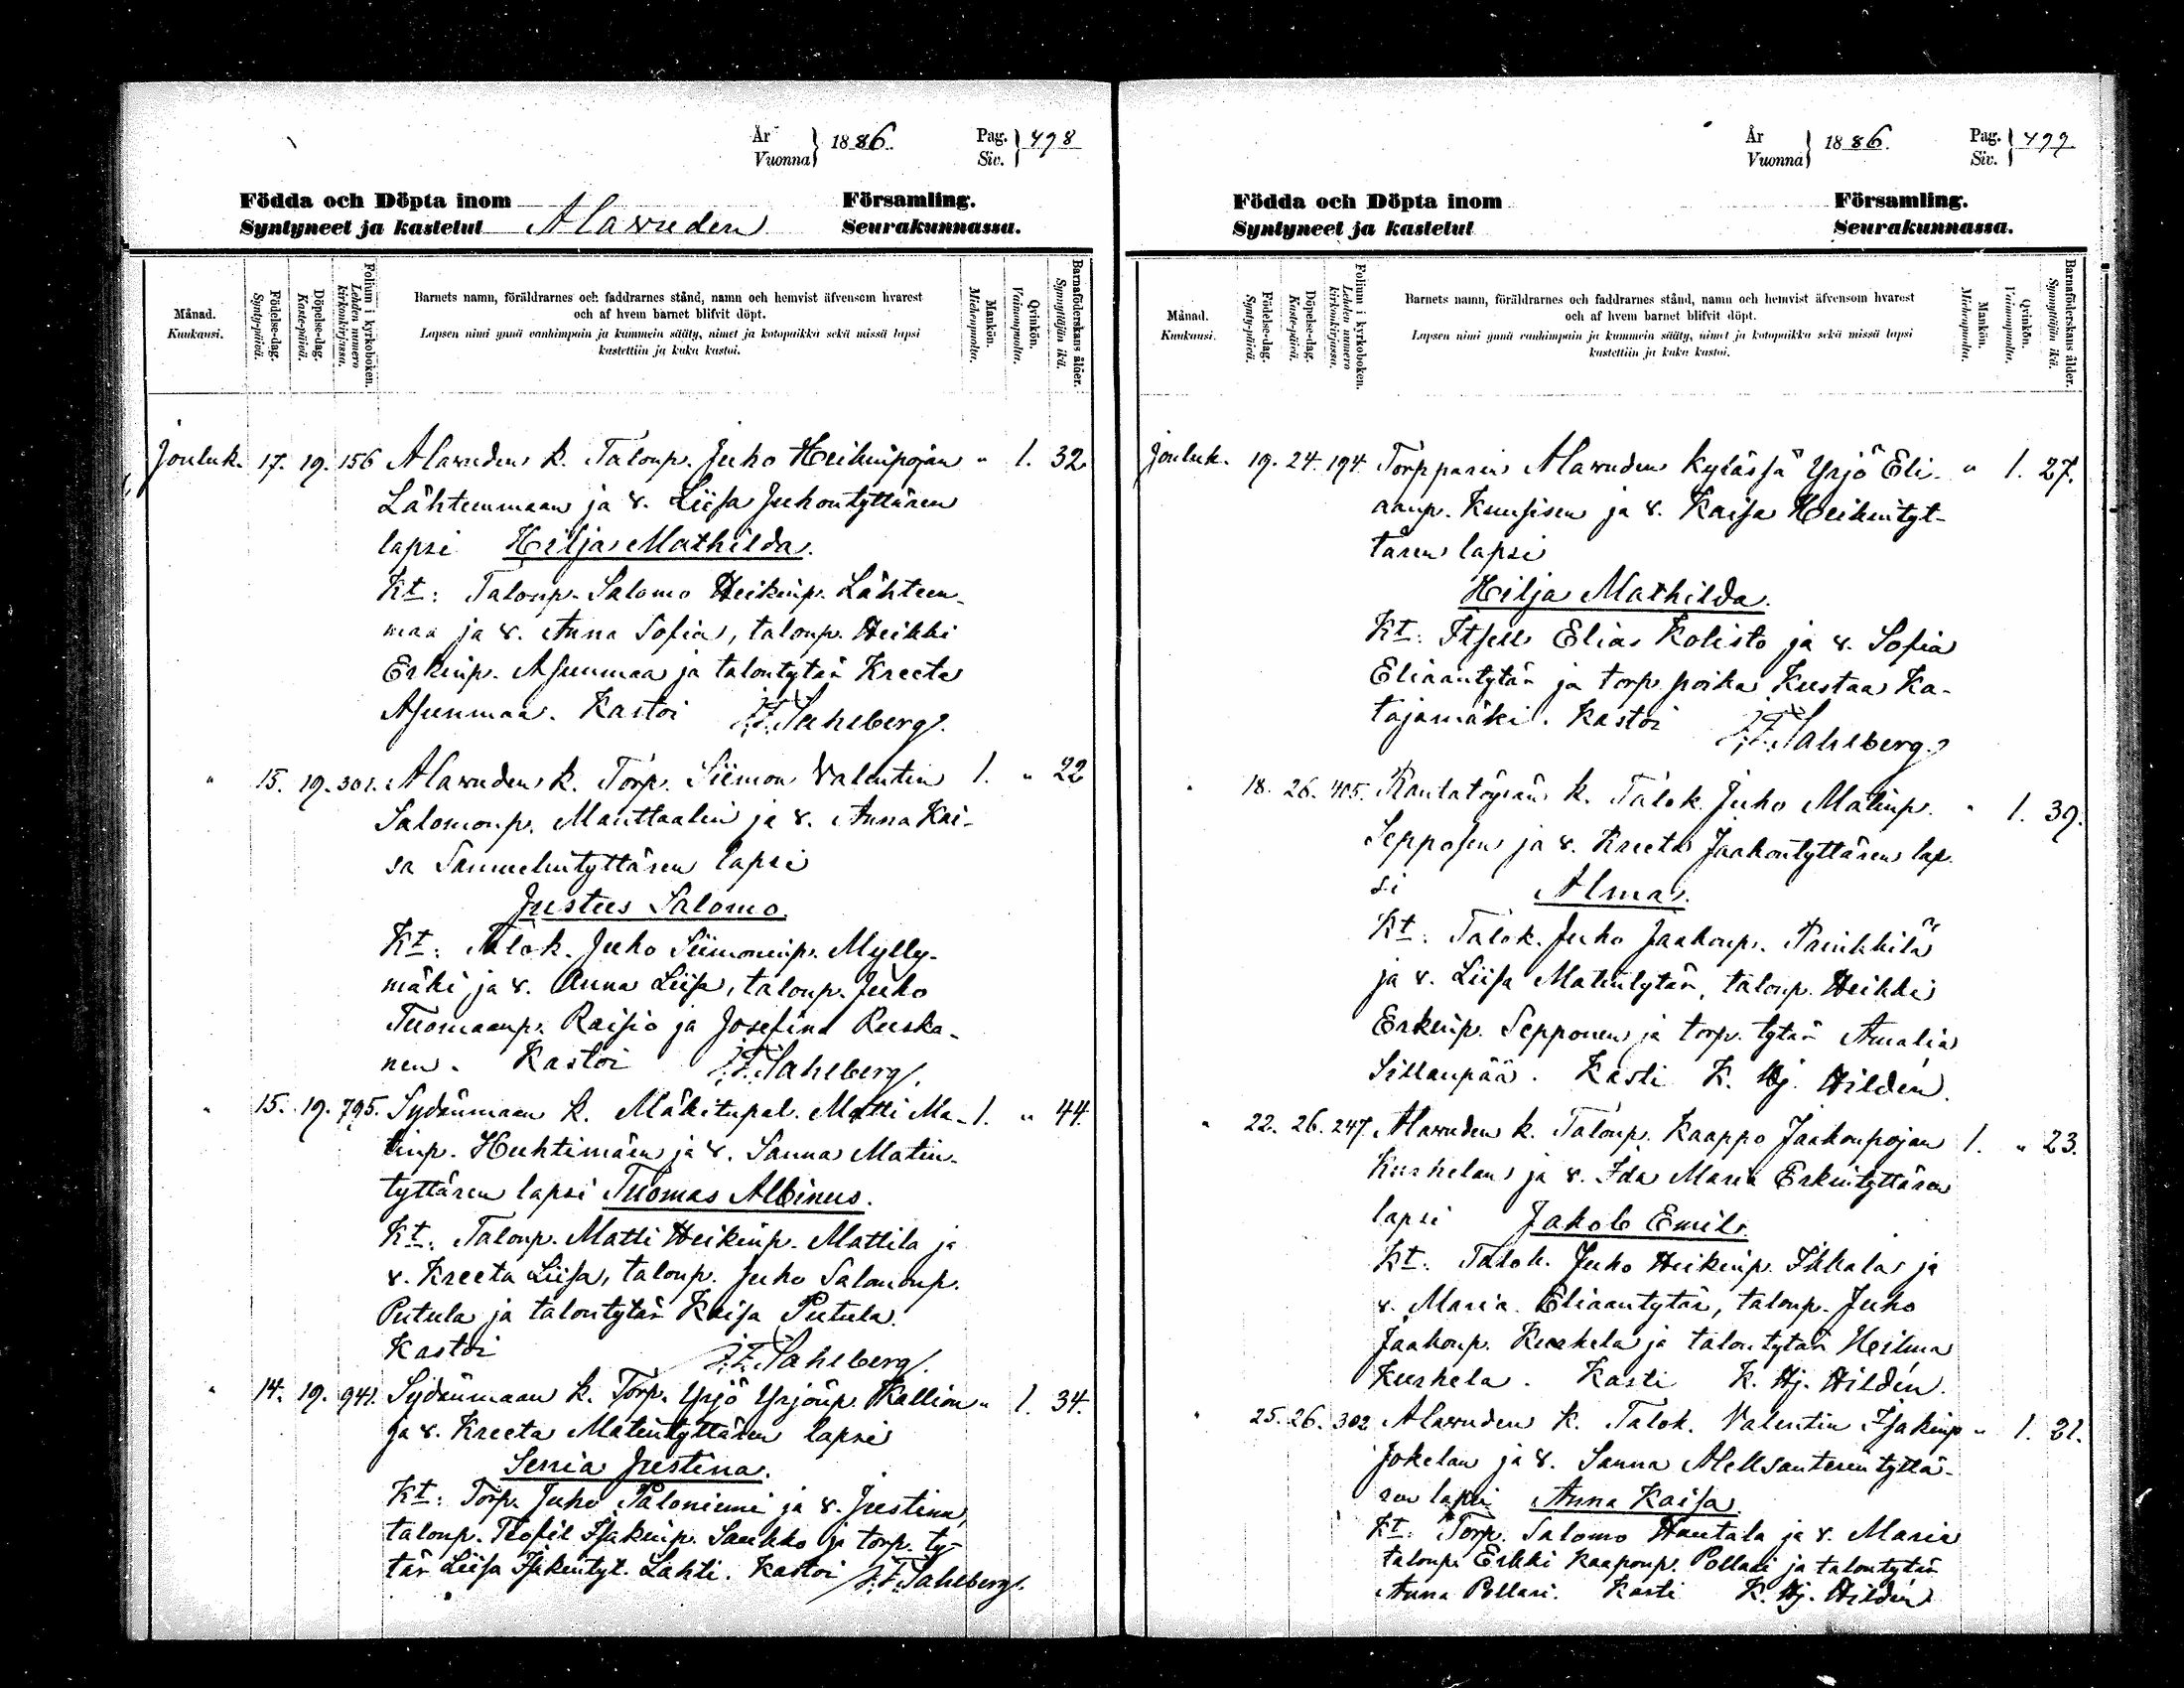 År
Vuonna } 1886. Pag.
Siv. } 498
Födda och Döpta inom Församling.
Syntyneet ja kastetut Alavuden Seurakunnassa.
Månad.
Kuukausi.
Födelse-dag.
Synty-päivä.
Döpelse-dag.
Kaste-päivä.
Folium i kyrkoboken.
Lehden numero
kirkonkirjassa.
Barnets namn, föräldrarnes och faddrarnes stånd, namn och hemvist äfvensom hvarest
och af hvem barnet blifvit döpt.
Lapsen nimi ynnä vanhimpain ja kummein sääty, nimet ja kotopaikka sekä missä lapsi
kastettiin ja kuka kastoi.
Mankön.
Miehenpuolta.
Qvinkön.
Vaimonpuolta.
Barnaföderskans ålder.
Synnyttäjän ikä.
Jouluk. 17. 19. 156 Alavuden k. Talonp. Juho Heikinpojan " 1. 32
Lähteenmaan ja v. Liisa Juhontyttären
lapsi Hilja Mathilda.
Kt: Talonp. Salomo Heikinp. Lähteen-
maa ja v. Anna Sofia, talonp. Heikki
Erkinp. Asunmaa ja talontytär Kreeta
Asunmaa. Kastoi J. F. Sahlberg.
" 15. 19. 301. Alavuden k. Torp. Siimon Valentin 1. " 22
Salomonp. Manttaalin ja v. Anna Kai-
sa Samuelintyttären lapsi
Justus Salomo.
Kt: Talok. Juho Siimoninp. Mylly-
mäki ja v. Anna Liisa, talonp. Juho
Tuomaanp. Raisio ja Josefina Ruska-
nen. Kastoi J. F. Sahlberg.
" 15. 19. 795. Sydänmaan k. Mäkitupal. Matti Ma- 1. " 44.
tinp. Huhtimäen ja v. Sanna Matin-
tyttären lapsi Tuomas Albinus.
Kt: Talonp. Matti Heikinp. Mattila ja
v. Kreeta Liisa, talonp. Juho Salomonp.
Putula ja talontytär Kaisa Putula.
Kastoi J. F. Sahlberg.
" 14. 19. 941. Sydänmaan k. Torp. Yrjö Yrjönp. Kallion " 1. 34.
ja v. Kreeta Matintyttären lapsi
Senia Justina.
Kt: Torp. Juho Paloniemi ja v. Justina,
talonp. Teofil Isakinp. Saukko ja torp. ty-
tär Liisa Isakintyt. Lahti. Kastoi J. F. Sahlberg.
År
Vuonna } 1886. Pag.
Siv. } 499
Födda och Döpta inom Församling.
Syntyneet ja kastetut Seurakunnassa.
Månad.
Kuukausi.
Födelse-dag.
Synty-päivä.
Döpelse-dag.
Kaste-päivä.
Folium i kyrkoboken.
Lehden numero
kirkonkirjassa.
Barnets namn, föräldrarnes och faddrarnes stånd, namn och hemvist äfvensom hvarest
och af hvem barnet blifvit döpt.
Lapsen nimi ynnä vanhimpain ja kummein sääty, nimet ja kotopaikka sekä missä lapsi
kastettiin ja kuka kastoi.
Mankön.
Miehenpuolta.
Qvinkön.
Vaimonpuolta.
Barnaföderskans ålder.
Synnyttäjän ikä.
Jouluk. 19. 24. 194. Torpparin Alavuden kylässä Yrjö Eli- " 1. 27.
aanp. Kuusisen ja v. Kaisa Heikintyt-
tären lapsi
Hilja Mathilda.
Kt: Itsell. Elias Kolisto ja v. Sofia
Eliaantytär ja torp. poika Kustaa Ka-
tajamäki. Kastoi J. F. Sahlberg.
" 18. 26. 405. Rantatöysän k. Talok. Juho Matinp. " 1. 39.
Sepposen ja v. Kreeta Jaakontyttären lap-
si Alma.
Kt: Talok. Juho Jaakonp.
ja v. Liisa Matintytär, talonp. Heikki
Erkinp. Sepponen ja torp. tytär Amalia
Sillanpää. Kasti K. Hj. Hildén.
" 22. 26. 247. Alavuden k. Talonp. Kaappo Jaakonpojan 1. " 23.
Kurhelan ja v. Ida Maria Erkintyttären
lapsi Jakob Emil.
Kt: Talok. Juho Heikinp. Ikkala ja
v. Maria Eliaantytär, talonp. Juho
Jaakonp. Kurhela ja talontytär Heilma
Kurhela. Kasti K. Hj. Hildén.
" 25. 26. 302 Alavuden k. Talok. Valentin Isakinp " 1. 21.
Jokelan ja v. Sanna Aleksanterintyttä-
ren lapsi Anna Kaisa.
Kt: Torp. Salomo Hautala ja v. Maria
talonp. Erkki Kaaponp. Pollari ja talontytär
Anna Pollari. Kasti K. Hj. Hildén